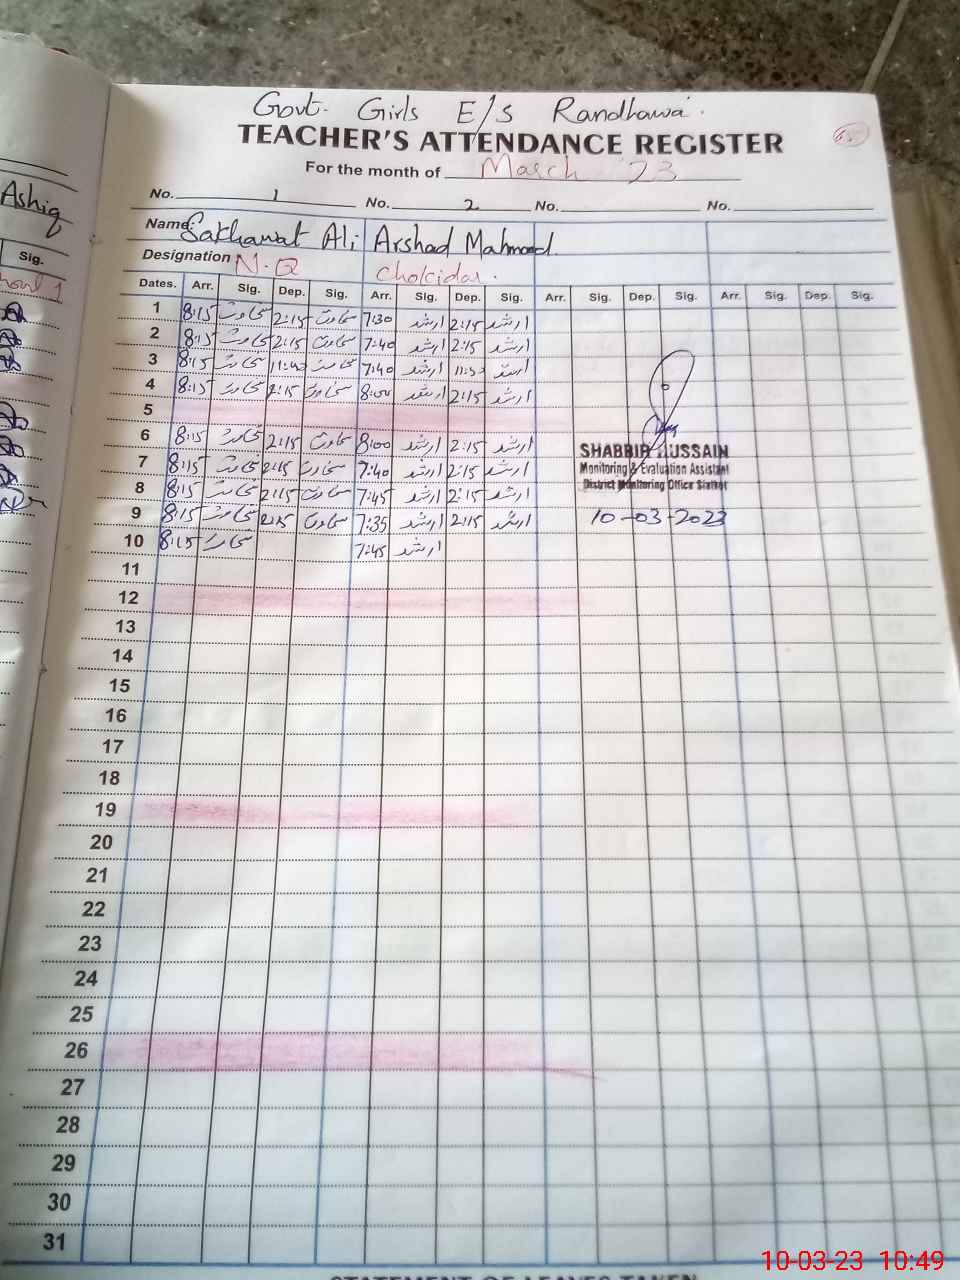 Govt. Girls E/S Randhawa.
TEACHER'S ATTENDANCE REGISTER
For the month of March 23
No. 1 No. 2 No. No.
Ashiq
Name: Sakhawat Ali Arshad Mahmood
Designation N.Q Chokidar.
Sig.
Dates. Arr. Sig. Dep. Sig. Arr. Sig. Dep. Sig. Arr. Sig. Dep. Sig. Arr. Sig. Dep. Sig.
1 8:15 سخاوت 2:15 سخاوت 7:30 ارشد 2:15 ارشد
2 8:15 سخاوت 2:15 سخاوت 7:40 ارشد 2:15 ارشد
3 8:15 سخاوت 11:40 سخاوت 7:40 ارشد 11:50 ارشد
4 8:15 سخاوت 2:15 سخاوت 8:00 ارشد 2:15 ارشد
5
6 8:15 سخاوت 2:15 سخاوت 8:00 ارشد 2:15 ارشد
SHABBIR HUSSAIN
7 8:15 سخاوت 2:15 سخاوت 7:40 ارشد 2:15 ارشد
Monitoring & Evaluation Assistant
8 8:15 سخاوت 2:15 سخاوت 7:45 ارشد 2:15 ارشد
District Monitoring Office Sialkot
9 8:15 سخاوت 2:15 سخاوت 7:35 ارشد 2:15 ارشد
10-03-2023
10 8:15 سخاوت 7:45 ارشد
11
12
13
14
15
16
17
18
19
20
21
22
23
24
25
26
27
28
29
30
31
10-03-23 10:49
STATEMENT OF LEAVES TAKEN